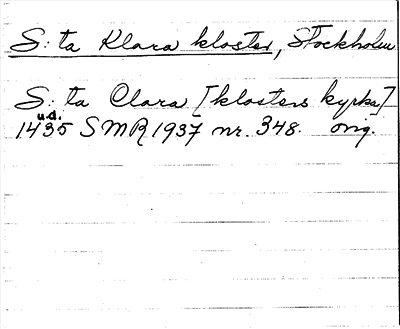 S:ta Klara kloster, Stockholm
S:ta Clara [klosters kyrka]
u.d.
1435 SMR 1937 nr. 348. orig.